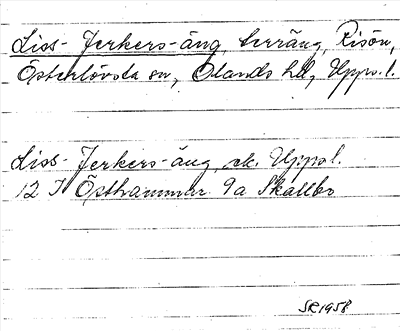 Liss-Jerkers-äng, terräng, Risön,
Österlövsta sn, Olands hd, Upps.l.
Liss-Jerkers-äng, ek. Uppsl.
12 I Östhammar 9a Skallbo
SR 1958